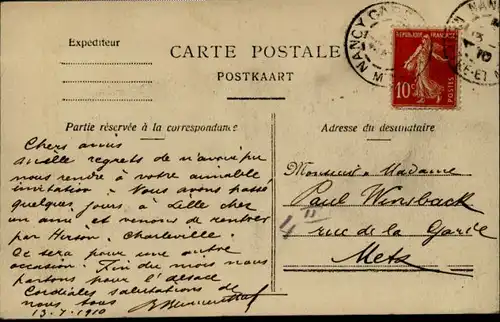 Expediteur
CARTE POSTALE
POSTKAART
NANCY GARE
NANCY
REPUBLIQUE FRANÇAISE
10c
Partie réservée à la correspondance
Adresse du destinataire
Chers amis
quelle regrets de n'avoir pu
nous rendre à votre aimable
invitation. Nous avons passé
quelques jours à Lille chez
un ami et venons de rentrer
par Hirson, Charleville.
Ce sera pour une autre
occasion. Fin du mois nous
partons pour l'alsace
Cordiales salutations de
nous tous
13-7-1910
Monsieur & Madame
Paul Winsback
11
4
rue de la Garde
Metz